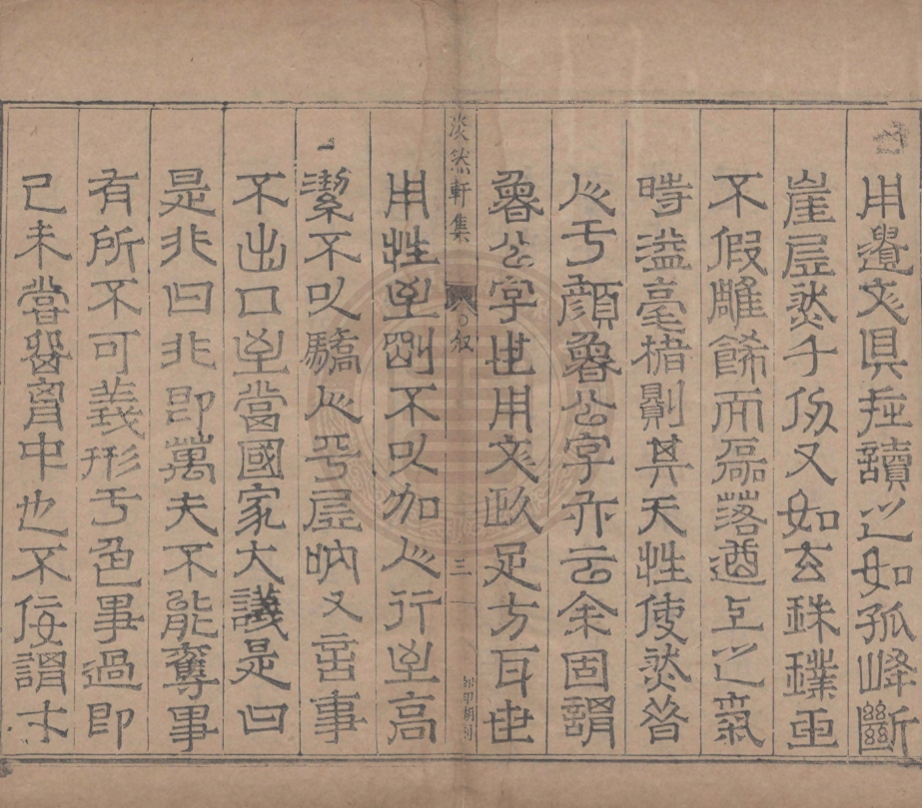 用遺文具在讀之如孤峰斷
崖居然千仞又如玄珠璞玉
不假雕飾而磊落遒上之氣
時溢毫楮則其天性使然昔
人于顏魯公字亦云余固謂
魯公字世用文歐足方耳世
淡然軒集 叙 三
用性至剛不以加人行至高
潔不以驕人平居吶又言事
不出口至當國家大議是曰
是非曰非即萬夫不能奪事
有所不可義形于色事過即
已未嘗留胷中也不佞謂